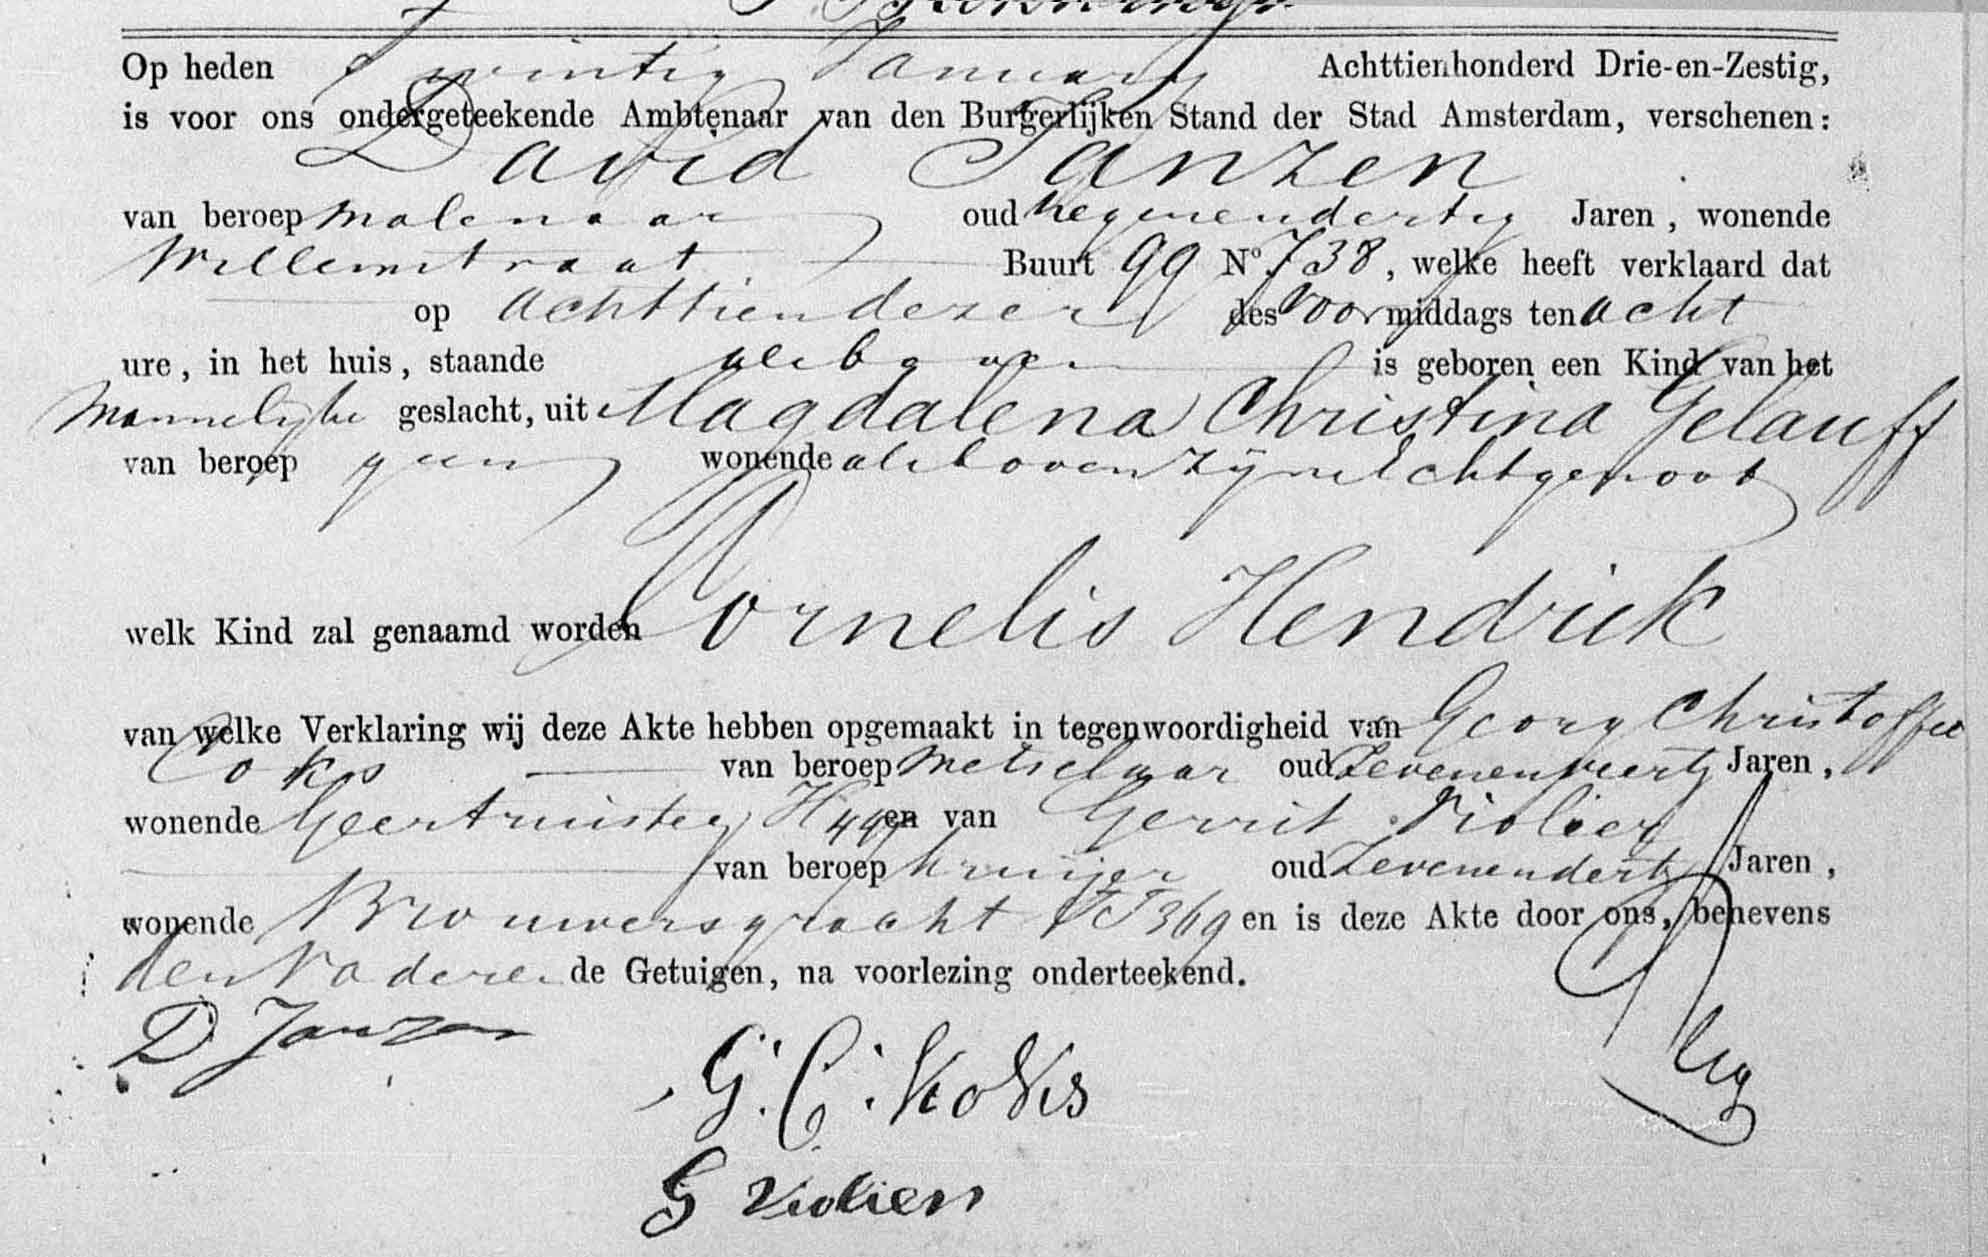 Op heden Twintig January Achttienhonderd Drie-en-Zestig,
is voor ons ondergeteekende Ambtenaar van den Burgerlijken Stand der Stad Amsterdam, verschenen:
David Janzen
van beroep molenaar oud negenendertig Jaren, wonende
Willemstraat Buurt 99 No 738, welke heeft verklaard dat
op achttien dezer des voormiddags ten acht
ure, in het huis, staande alsboven is geboren een Kind van het
Mannelijke geslacht, uit Magdalena Christina Gelauff
van beroep geen wonende alsboven zijne Echtgenoot
welk Kind zal genaamd worden Cornelis Hendrik
van welke Verklaring wij deze Akte hebben opgemaakt in tegenwoordigheid van Georg Christoffel
Coks van beroep metselaar oud Zevenenveertig Jaren,
wonende Geertruisteg H 499 en van Gerrit Violier
van beroep kruijer oud Zevenendertig Jaren,
wonende Brouwersgracht TT 369 en is deze Akte door ons, benevens
den Vader en de Getuigen, na voorlezing onderteekend.
D Janzen
G. C. Koks
G Violier